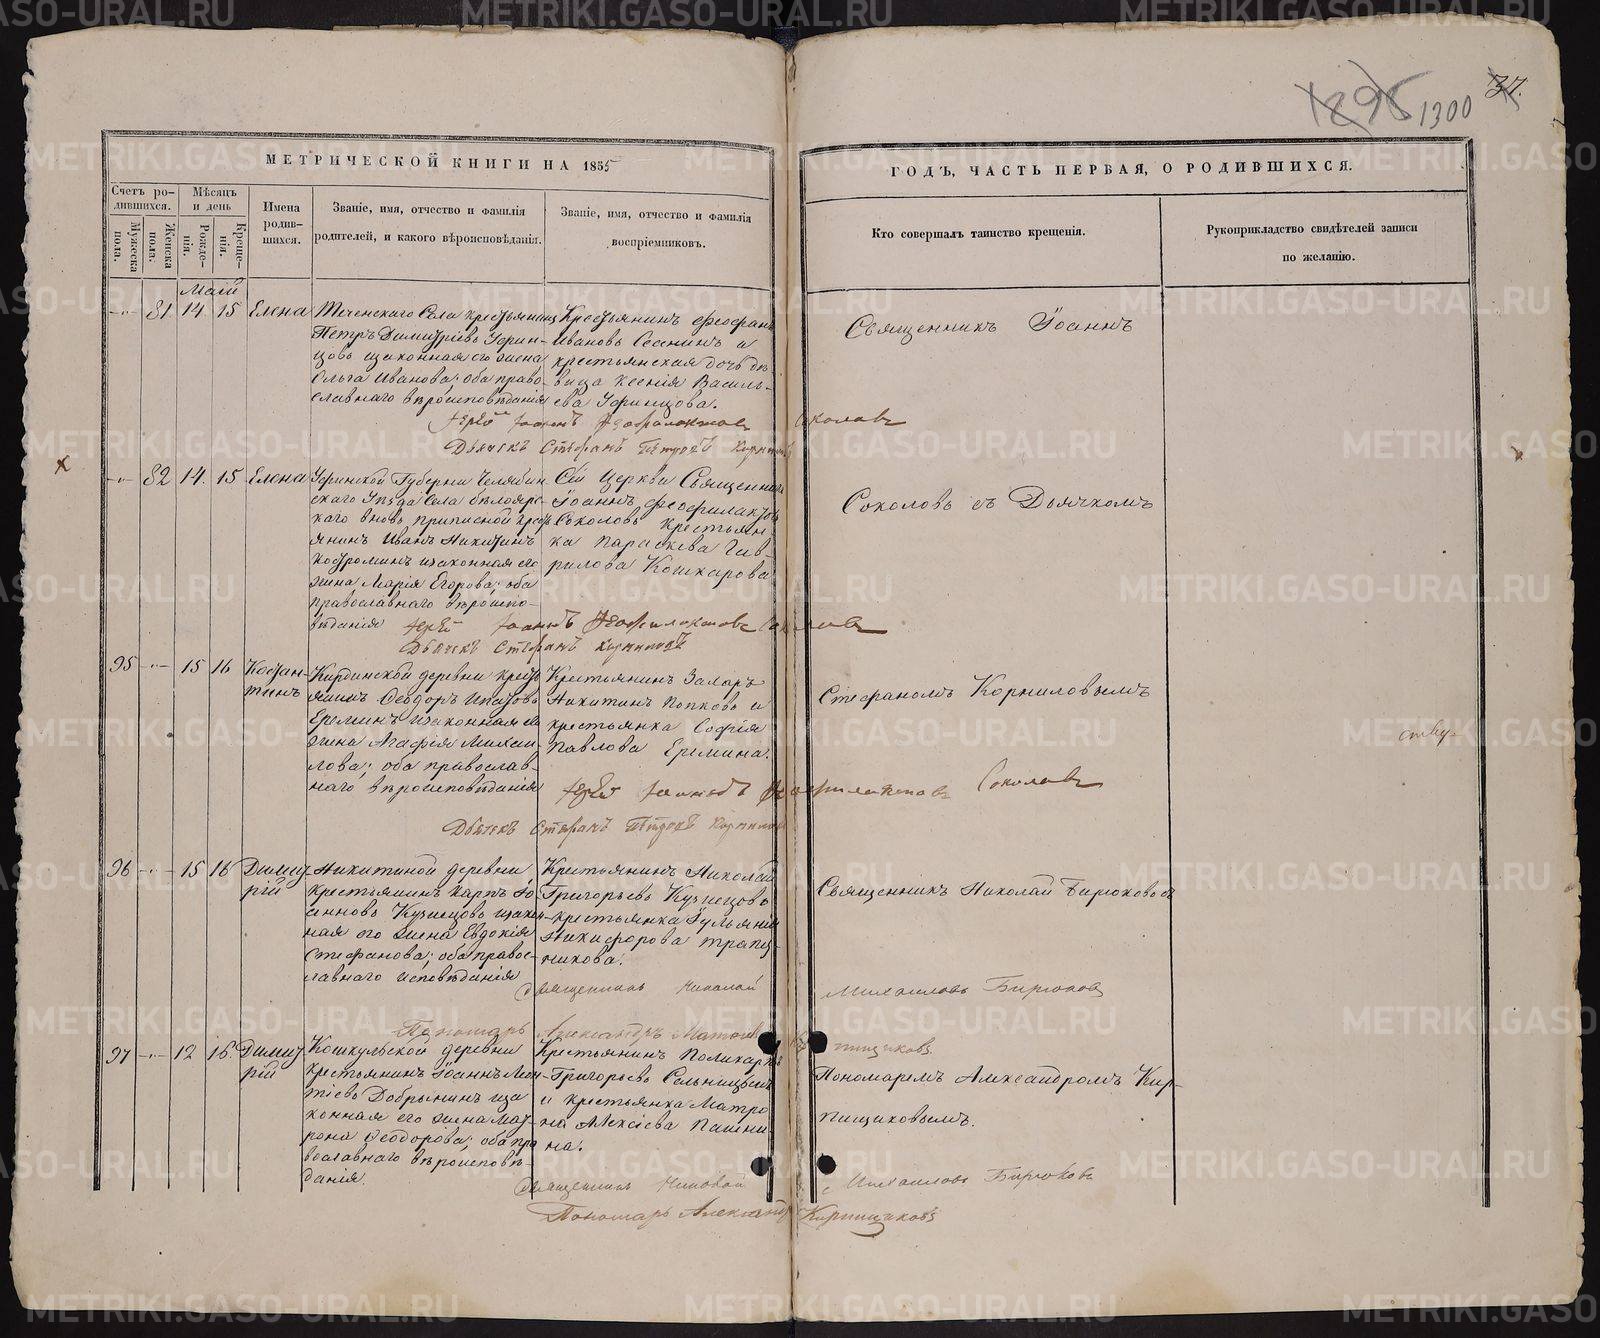 1300
37.
МЕТРИЧЕСКОЙ КНИГИ НА 1855
ГОДЪ, ЧАСТЬ ПЕРВАЯ, О РОДИВШИХСЯ.
Счетъ ро-
дившихся.
Мужеска пола.
Женска пола.
Мѣсяцъ
и день
Рожде-
нія.
Креще-
нія.
Имена
родив-
шихся.
Званіе, имя, отчество и фамилія
родителей, и какого вѣроисповѣданія.
Званіе, имя, отчество и фамилія
воспріемниковъ.
Кто совершалъ таинство крещенія.
Рукоприкладство свидѣтелей записи
по желанію.
Маій
81 14 15 Елена
Теченскаго Села крестьянинъ
Петръ Димитріевъ Уфин-
цовъ изаконная его жена
Ольга Иванова; оба право-
славнаго вѣроисповѣданія
Крестьянинъ Феофанъ
Ивановъ Сесенинъ и
крестьянская дочь дѣ-
вица Ксенія Василь-
ева Уфинцова.
Священникъ Іоаннъ
Іерей Іоаннъ Феофилактовъ Соколовъ
Дьячекъ Стефанъ Петровъ Корниловъ
82 14. 15 Елена
Уфинской Губерніи Челябин-
скаго Уѣзда Села бѣлояр-
каго вновь приписной крест-
янинъ Иванъ Никитинъ
Костроминъ изаконная его
жена Марія Егорова; оба
православнаго вѣроиспо-
вѣданія
Сей Церкви Священникъ
Іоаннъ Феофилактовъ
Соколовъ Крестьян-
ка Параскева Гав-
рилова Кошкарова
Соколовъ съ Дьячкомъ
Іерей Іоаннъ Феофилактовъ Соколовъ
Дьячекъ Стефанъ Корниловъ
95 15 16 Констан-
тинъ
Кирдинской деревни крест
янинъ Феодоръ Ипатовъ
Ереминъ изаконная его
жена Агафія Михаи-
лова; оба православ-
наго вѣроисповѣданія
Крестьянинъ Захаръ
Никитинъ Попковъ и
крестьянка Софія
Павлова Еремина.
Стефаномъ Корниловымъ
Іерей Іоаннъ Феофилактовъ Соколовъ
Дьячекъ Стефанъ Петровъ Корниловъ
96 15 16 Димит-
рій
Никитиной деревни
крестьянинъ Карпъ Іо-
анновъ Кузнецовъ изакон-
ная его жена Евдокія
Стефанова; оба правос-
лавнаго исповѣданія
Крестьянинъ Николай
Григорьевъ Кузнецовъ
крестьянка Іульянія
Никифорова трапез-
никова.
Священникъ Николай Бирюковъ съ
Священникъ Николай Михаиловъ Бирюковъ
Пономарь Александръ
97 12 16. Димит-
рій
Кошкульской деревни
крестьянинъ Іоаннъ Леон-
тіевъ Добрынинъ иза
конная его жена Мат-
рона Феодорова; оба пра
вославнаго вѣроисповѣ-
данія.
Крестьянинъ Поликарпъ
Григорьевъ Сельницынъ
и крестьянка Матро
на Алексіева Пашни-
на.
Пономаремъ Александромъ Кир-
пищиковымъ.
Священникъ Николай Михаиловъ Бирюковъ
Пономарь Александръ Кирпищиковъ
METRIKI.GASO-URAL.RU